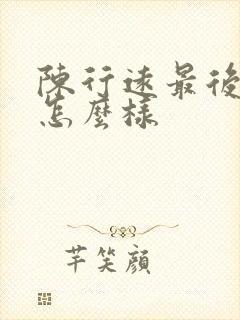 陳行遠最後
怎麼樣
芊笑顏